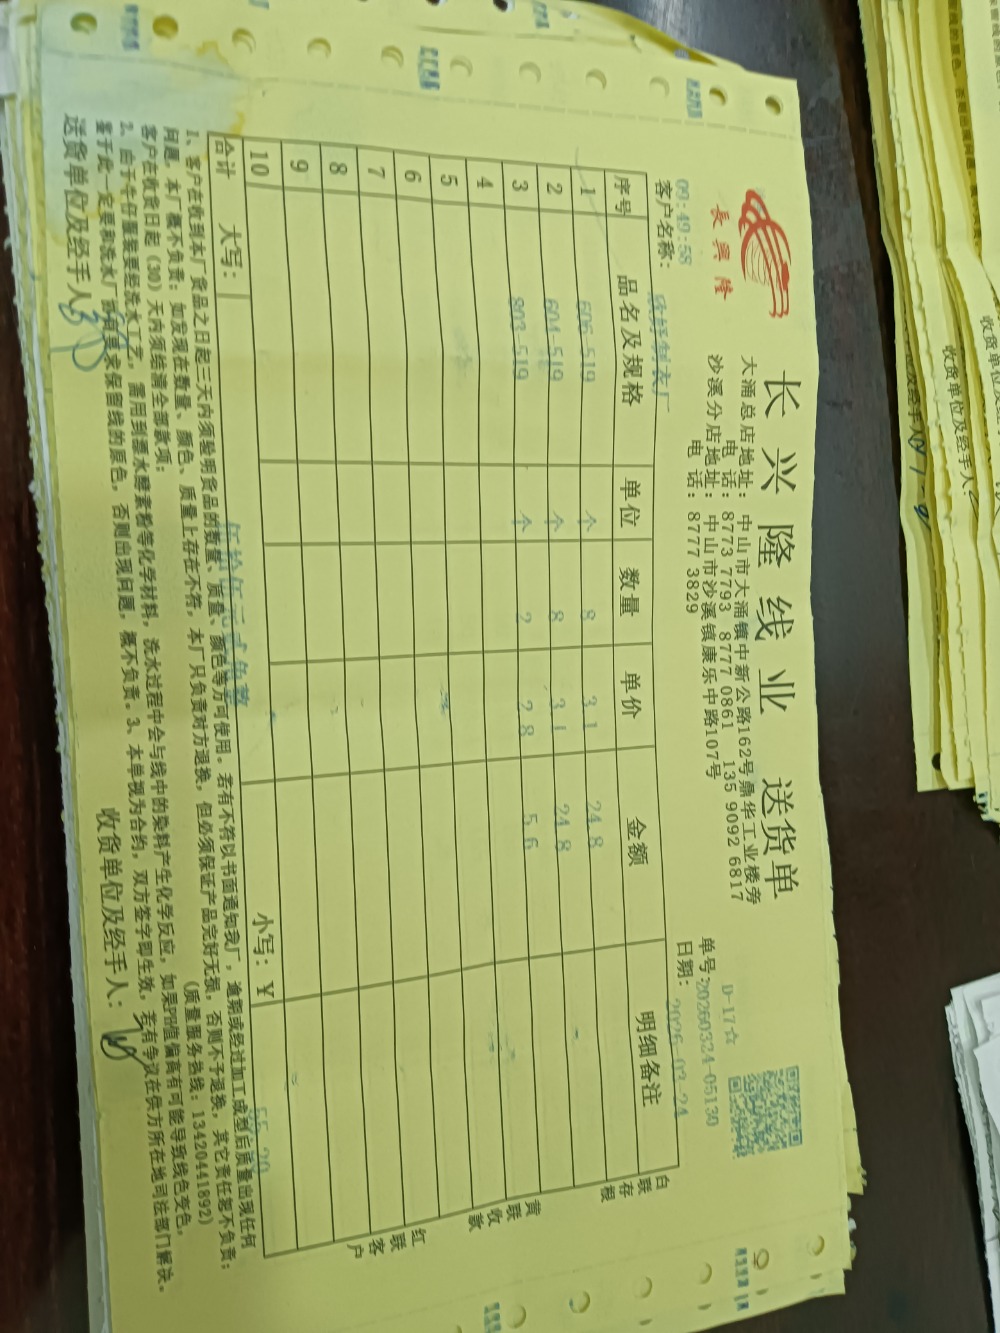 長興隆
长兴隆线业 送货单
大涌总店地址：中山市大涌镇中新公路162号鼎华工业楼旁
电 话：8773 7793 8777 0861 135 9092 6817
沙溪分店地址：中山市沙溪镇康乐中路107号
电 话：8777 3829
D-17☆
单号：20260324-05130
日期：2026-03-24
09:49:58
客户名称：
序号 品名及规格 单位 数量 单价 金额 明细备注
1 606-519 个 8 3.1 24.8
2 604-519 个 8 3.1 24.8
3 803-519 个 2 2.8 5.6
4
5
6
7
8
9
10
合计 大写：伍拾伍元贰角整 小写：￥ 55.20
白联存根
黄联收款
红联客户
1、客户在收到本厂货品之日起三天内须验明货品的数量、质量、颜色等方可使用。若有不符以书面通知我厂，逾期或经过加工成型后质量出现任何
问题，本厂概不负责；如发现在数量、颜色、质量上存在不符，本厂只负责对方退换，但必须保证产品完好无损，否则不予退换，其它责任概不负责；
客户在收货日起（30）天内须结清全部款项； （质量服务热线：13420441892）
2、由于牛仔服装要经洗水工艺，需用到漂水酵素粉等化学材料，洗水过程中会与线中的染料产生化学反应，如果PH值偏高有可能导致线色变色，
鉴于此一定要和洗水厂商有要求保留线的原色，否则出现问题，概不负责。3、本单视为合约，双方签字即生效，若有争议在供方所在地司法部门解决。
送货单位及经手人：
收货单位及经手人：
收货单位及经手人
收货单位及经手人